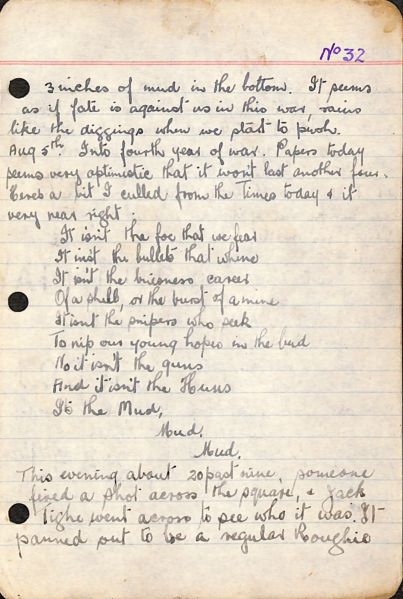 No 32
3 inches of mud in the bottom. It seems
as if fate is against us in this war, rains
like the diggings when we start to push.
Aug 5th. Into fourth year of war. Papers today
seems very optimistic that it wont last another four.
Here's a bit I culled from the Times today & it
very near right:
It isn't the foe that we fear
It isnt the bullets that whine
It isn't the business career
Of a shell, or the burst of a mine
It isnt the snipers who seek
To nip our young hopes in the bud
No it isn't the guns
And it isn't the Huns
Its the Mud,
Mud,
Mud.
This evening about 20 past nine, someone
fired a shot across the square, & Jack
Tighe went across to see who it was. It
panned out to be a regular Roughie